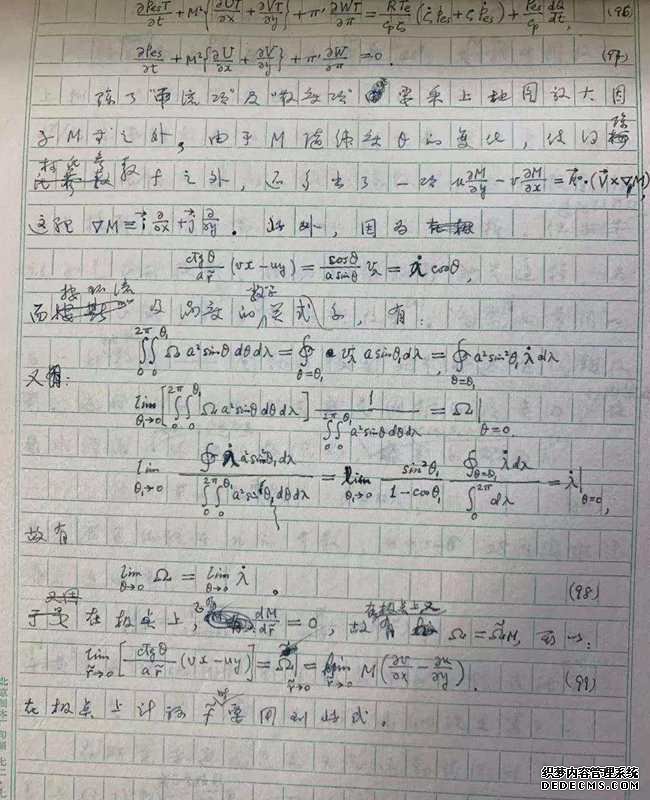 ∂PesT/∂t + M²{∂UT/∂x + ∂VT/∂y} + π·∂WT/∂π = RTe/(cpζ) (ζṖes + ζ̇Pes) + Pes/cp dQ/dt, (96)
∂Pes/∂t + M²{∂U/∂x + ∂V/∂y} + π·∂W/∂π = 0. (97)
除了"平流项"及"散度项" 要乘上地图放大因
子M之外,由于M随纬效θ的变化,使得除
柯氏参数f之外,还多出了一项 u∂M/∂y − v∂M/∂x = k⃗·(V⃗×∇M),
这里 ∇M ≡ i⃗ ∂/∂x + j⃗ ∂/∂y. 此外,因为
ctgθ/(a r̃) (vx − uy) = cosθ/(a sinθ) vλ = λ̇ cosθ,
而按环流及涡度的数学关系式,有:
∫₀^2π∫₀^θ₁ Ω a² sinθ dθ dλ = ∮θ=θ₁ vλ a sinθ₁ dλ = ∮θ=θ₁ a² sin²θ₁ λ̇ dλ
又有:
lim θ₁→0 [∫₀^2π∫₀^θ₁ Ω a² sinθ dθ dλ] 1/(∫₀^2π∫₀^θ₁ a² sinθ dθ dλ) = Ω|θ=0
lim θ₁→0 ∮ λ̇ a² sin²θ₁ dλ/(∫₀^2π∫₀^θ₁ a² sinθ dθ dλ) = lim θ₁→0 sin²θ₁/(1−cosθ₁) ∮θ=θ₁ λ̇ dλ/(∫₀^2π dλ) = λ̇|θ=0,
故有
lim θ→0 Ω = lim θ→0 λ̇. (98)
在极点上, dM/dr̃ = 0, 故在极点上又有 Ω = Ω̃M,
lim r̃→0 [ctgθ/(a r̃) (vx − uy)] = Ω̃|r̃→0 = lim r̃→0 M(∂v/∂x − ∂u/∂y). (99)
在极点上计算 f̃ 时要用到此式.